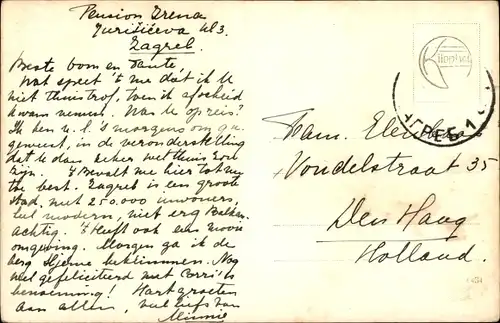 Pension Irena
Jurišićeva ul 3.
Zagreb.
Beste oom en tante.
Wat speet 't me dat ik U
niet thuis trof, toen ik afscheid
kwam nemen. Was U op reis?
Ik ben n.b. 's morgens om
geweest, in de veronderstelling
dat U dan zeker wel thuis zou
zijn. 't Bevalt me hier tot nu
toe best. Zagreb is een groote
stad, met 250.000 inwoners,
heel modern, niet erg Balkan-
achtig. 't Heeft ook een mooie
omgeving. Morgen ga ik de
berg Sljeme beklimmen. Nog
wel gefeliciteerd met Borris
benoeming! Hartgroeten
aan allen, veel liefs van
Minnie
Fam.
Vondelstraat 35
Den Haag
Holland.